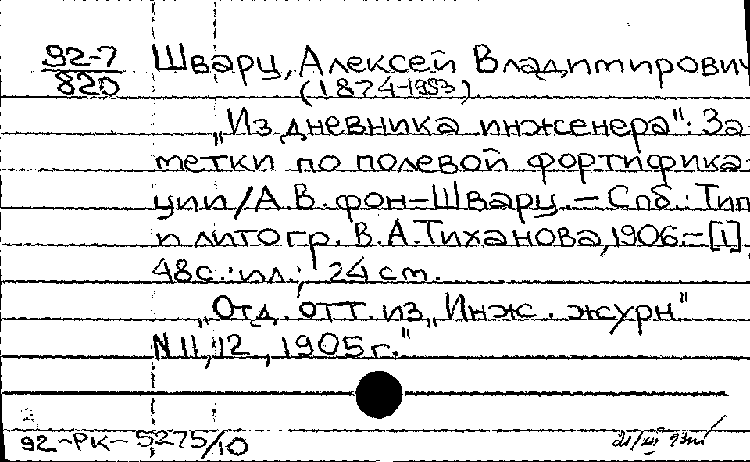 92-7 Шварц, Алексей Владимирович
820 (1874-1953)
„Из дневника инженера": За
метки по полевой фортифика-
ции/А.В. фон-Шварц.-Спб.: Тип
и литогр. В.А.Тиханова, 1906.-[1],
48с.:ил.; 24 cm.
„Отд. отт. из „Инж. журн"
N 11,12, 1905г."
2
92-РК-5275/10